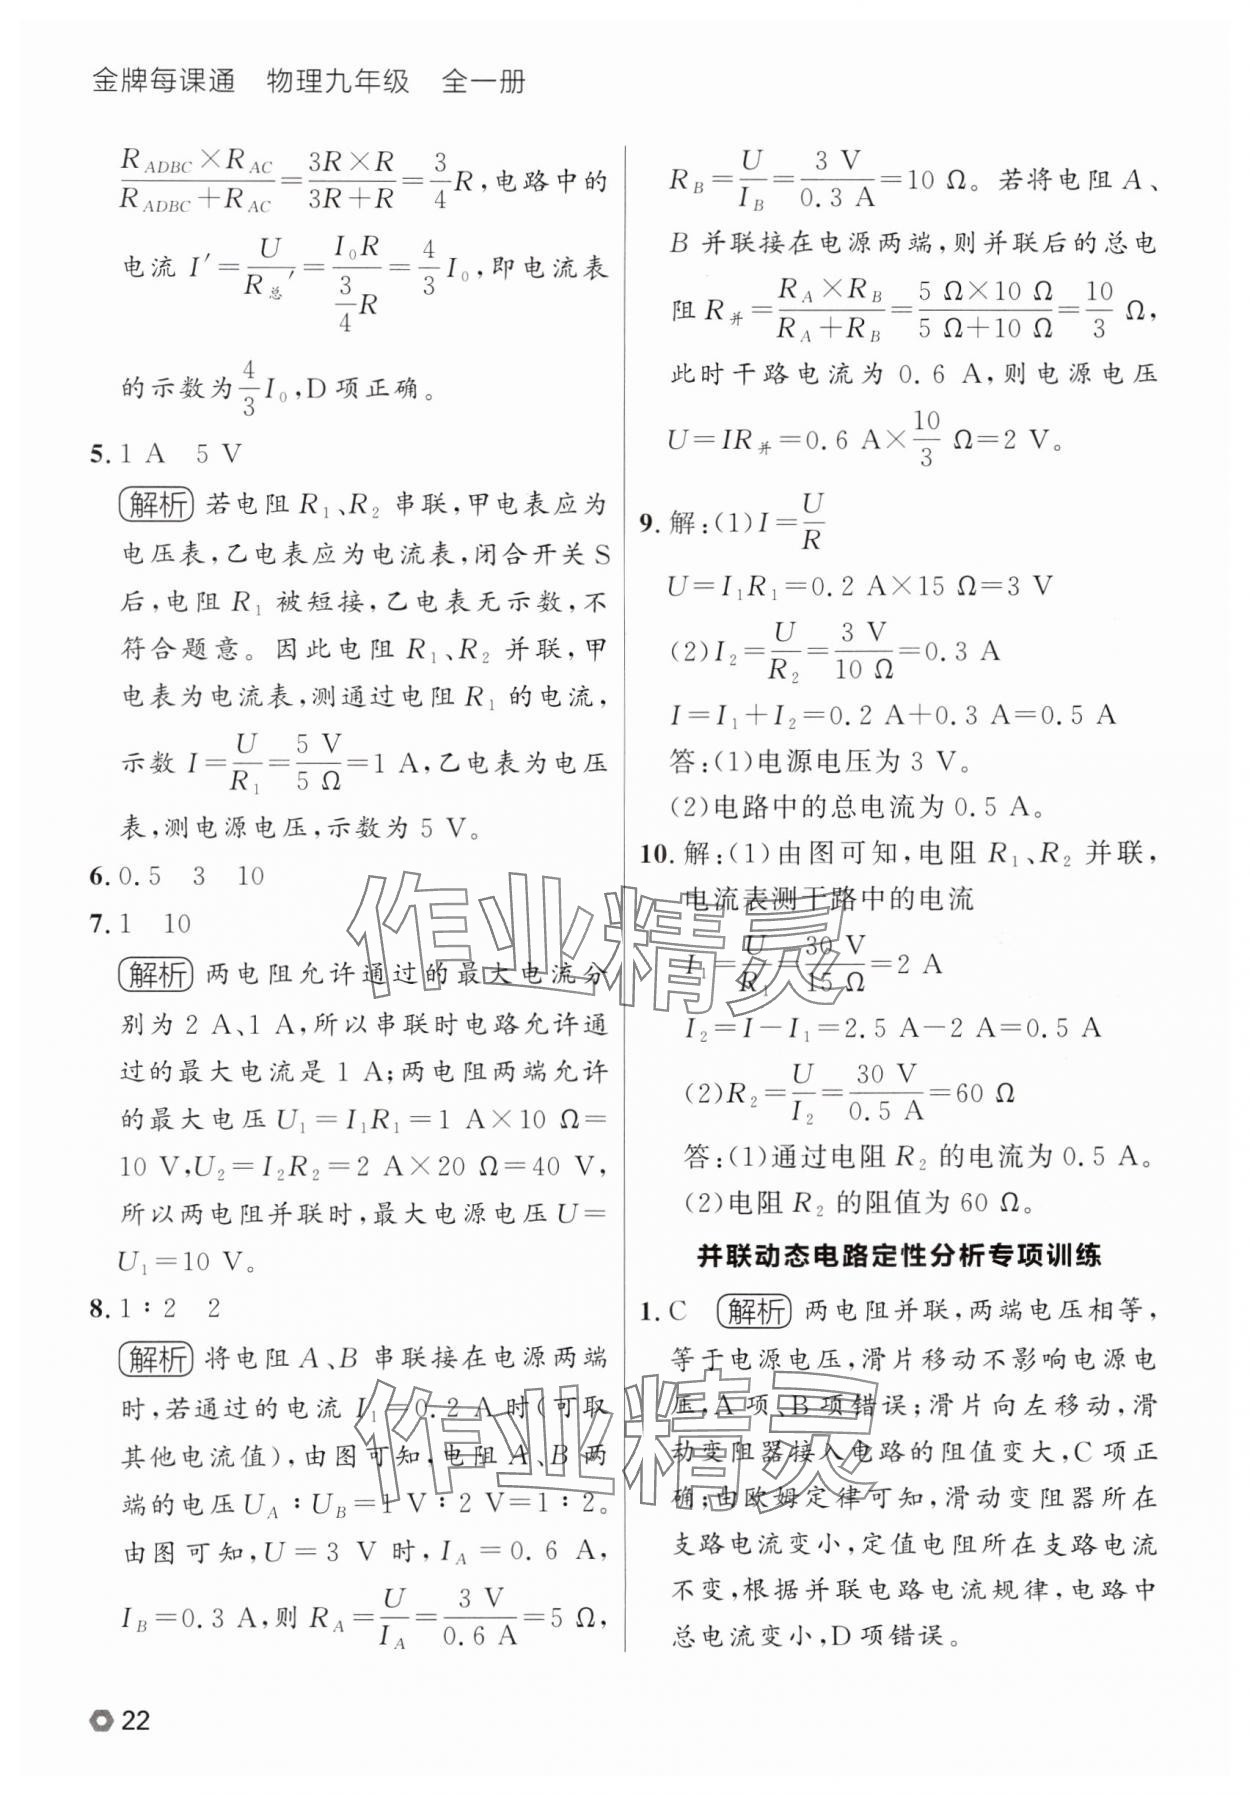 金牌每课通　物理九年级　全一册
\frac{R_{ADBC}×R_{AC}}{R_{ADBC}+R_{AC}}=\frac{3R×R}{3R+R}=\frac{3}{4}R,电路中的
电流 I'=\frac{U}{R_{总}'}=\frac{I_0R}{\frac{3}{4}R}=\frac{4}{3}I_0,即电流表
的示数为\frac{4}{3}I_0,D项正确。
5. 1 A　5 V
解析 若电阻R_1、R_2串联,甲电表应为
电压表,乙电表应为电流表,闭合开关S
后,电阻R_1被短接,乙电表无示数,不
符合题意。因此电阻R_1、R_2并联,甲
电表为电流表,测通过电阻R_1的电流,
示数I=\frac{U}{R_1}=\frac{5 V}{5 Ω}=1 A,乙电表为电压
表,测电源电压,示数为5 V。
6. 0.5　3　10
7. 1　10
解析 两电阻允许通过的最大电流分
别为2 A、1 A,所以串联时电路允许通
过的最大电流是1 A;两电阻两端允许
的最大电压U_1=I_1R_1=1 A×10 Ω=
10 V,U_2=I_2R_2=2 A×20 Ω=40 V,
所以两电阻并联时,最大电源电压U=
U_1=10 V。
8. 1∶2　2
解析 将电阻A、B串联接在电源两端
时,若通过的电流I_1=0.2 A时(可取
其他电流值),由图可知,电阻A、B两
端的电压U_A∶U_B=1 V∶2 V=1∶2。
由图可知,U=3 V时,I_A=0.6 A,
I_B=0.3 A,则R_A=\frac{U}{I_A}=\frac{3 V}{0.6 A}=5 Ω,
R_B=\frac{U}{I_B}=\frac{3 V}{0.3 A}=10 Ω。若将电阻A、
B并联接在电源两端,则并联后的总电
阻R_并=\frac{R_A×R_B}{R_A+R_B}=\frac{5 Ω×10 Ω}{5 Ω+10 Ω}=\frac{10}{3} Ω,
此时干路电流为0.6 A,则电源电压
U=IR_并=0.6 A×\frac{10}{3} Ω=2 V。
9. 解:(1)I=\frac{U}{R}
U=I_1R_1=0.2 A×15 Ω=3 V
(2)I_2=\frac{U}{R_2}=\frac{3 V}{10 Ω}=0.3 A
I=I_1+I_2=0.2 A+0.3 A=0.5 A
答:(1)电源电压为3 V。
(2)电路中的总电流为0.5 A。
10. 解:(1)由图可知,电阻R_1、R_2并联,
电流表测干路中的电流
I_1=\frac{U}{R_1}=\frac{30 V}{15 Ω}=2 A
I_2=I-I_1=2.5 A-2 A=0.5 A
(2)R_2=\frac{U}{I_2}=\frac{30 V}{0.5 A}=60 Ω
答:(1)通过电阻R_2的电流为0.5 A。
(2)电阻R_2的阻值为60 Ω。
并联动态电路定性分析专项训练
1. C　解析 两电阻并联,两端电压相等,
等于电源电压,滑片移动不影响电源电
压,A项、B项错误;滑片向左移动,滑
动变阻器接入电路的阻值变大,C项正
确;由欧姆定律可知,滑动变阻器所在
支路电流变小,定值电阻所在支路电流
不变,根据并联电路电流规律,电路中
总电流变小,D项错误。
22
作业精灵
作业精灵